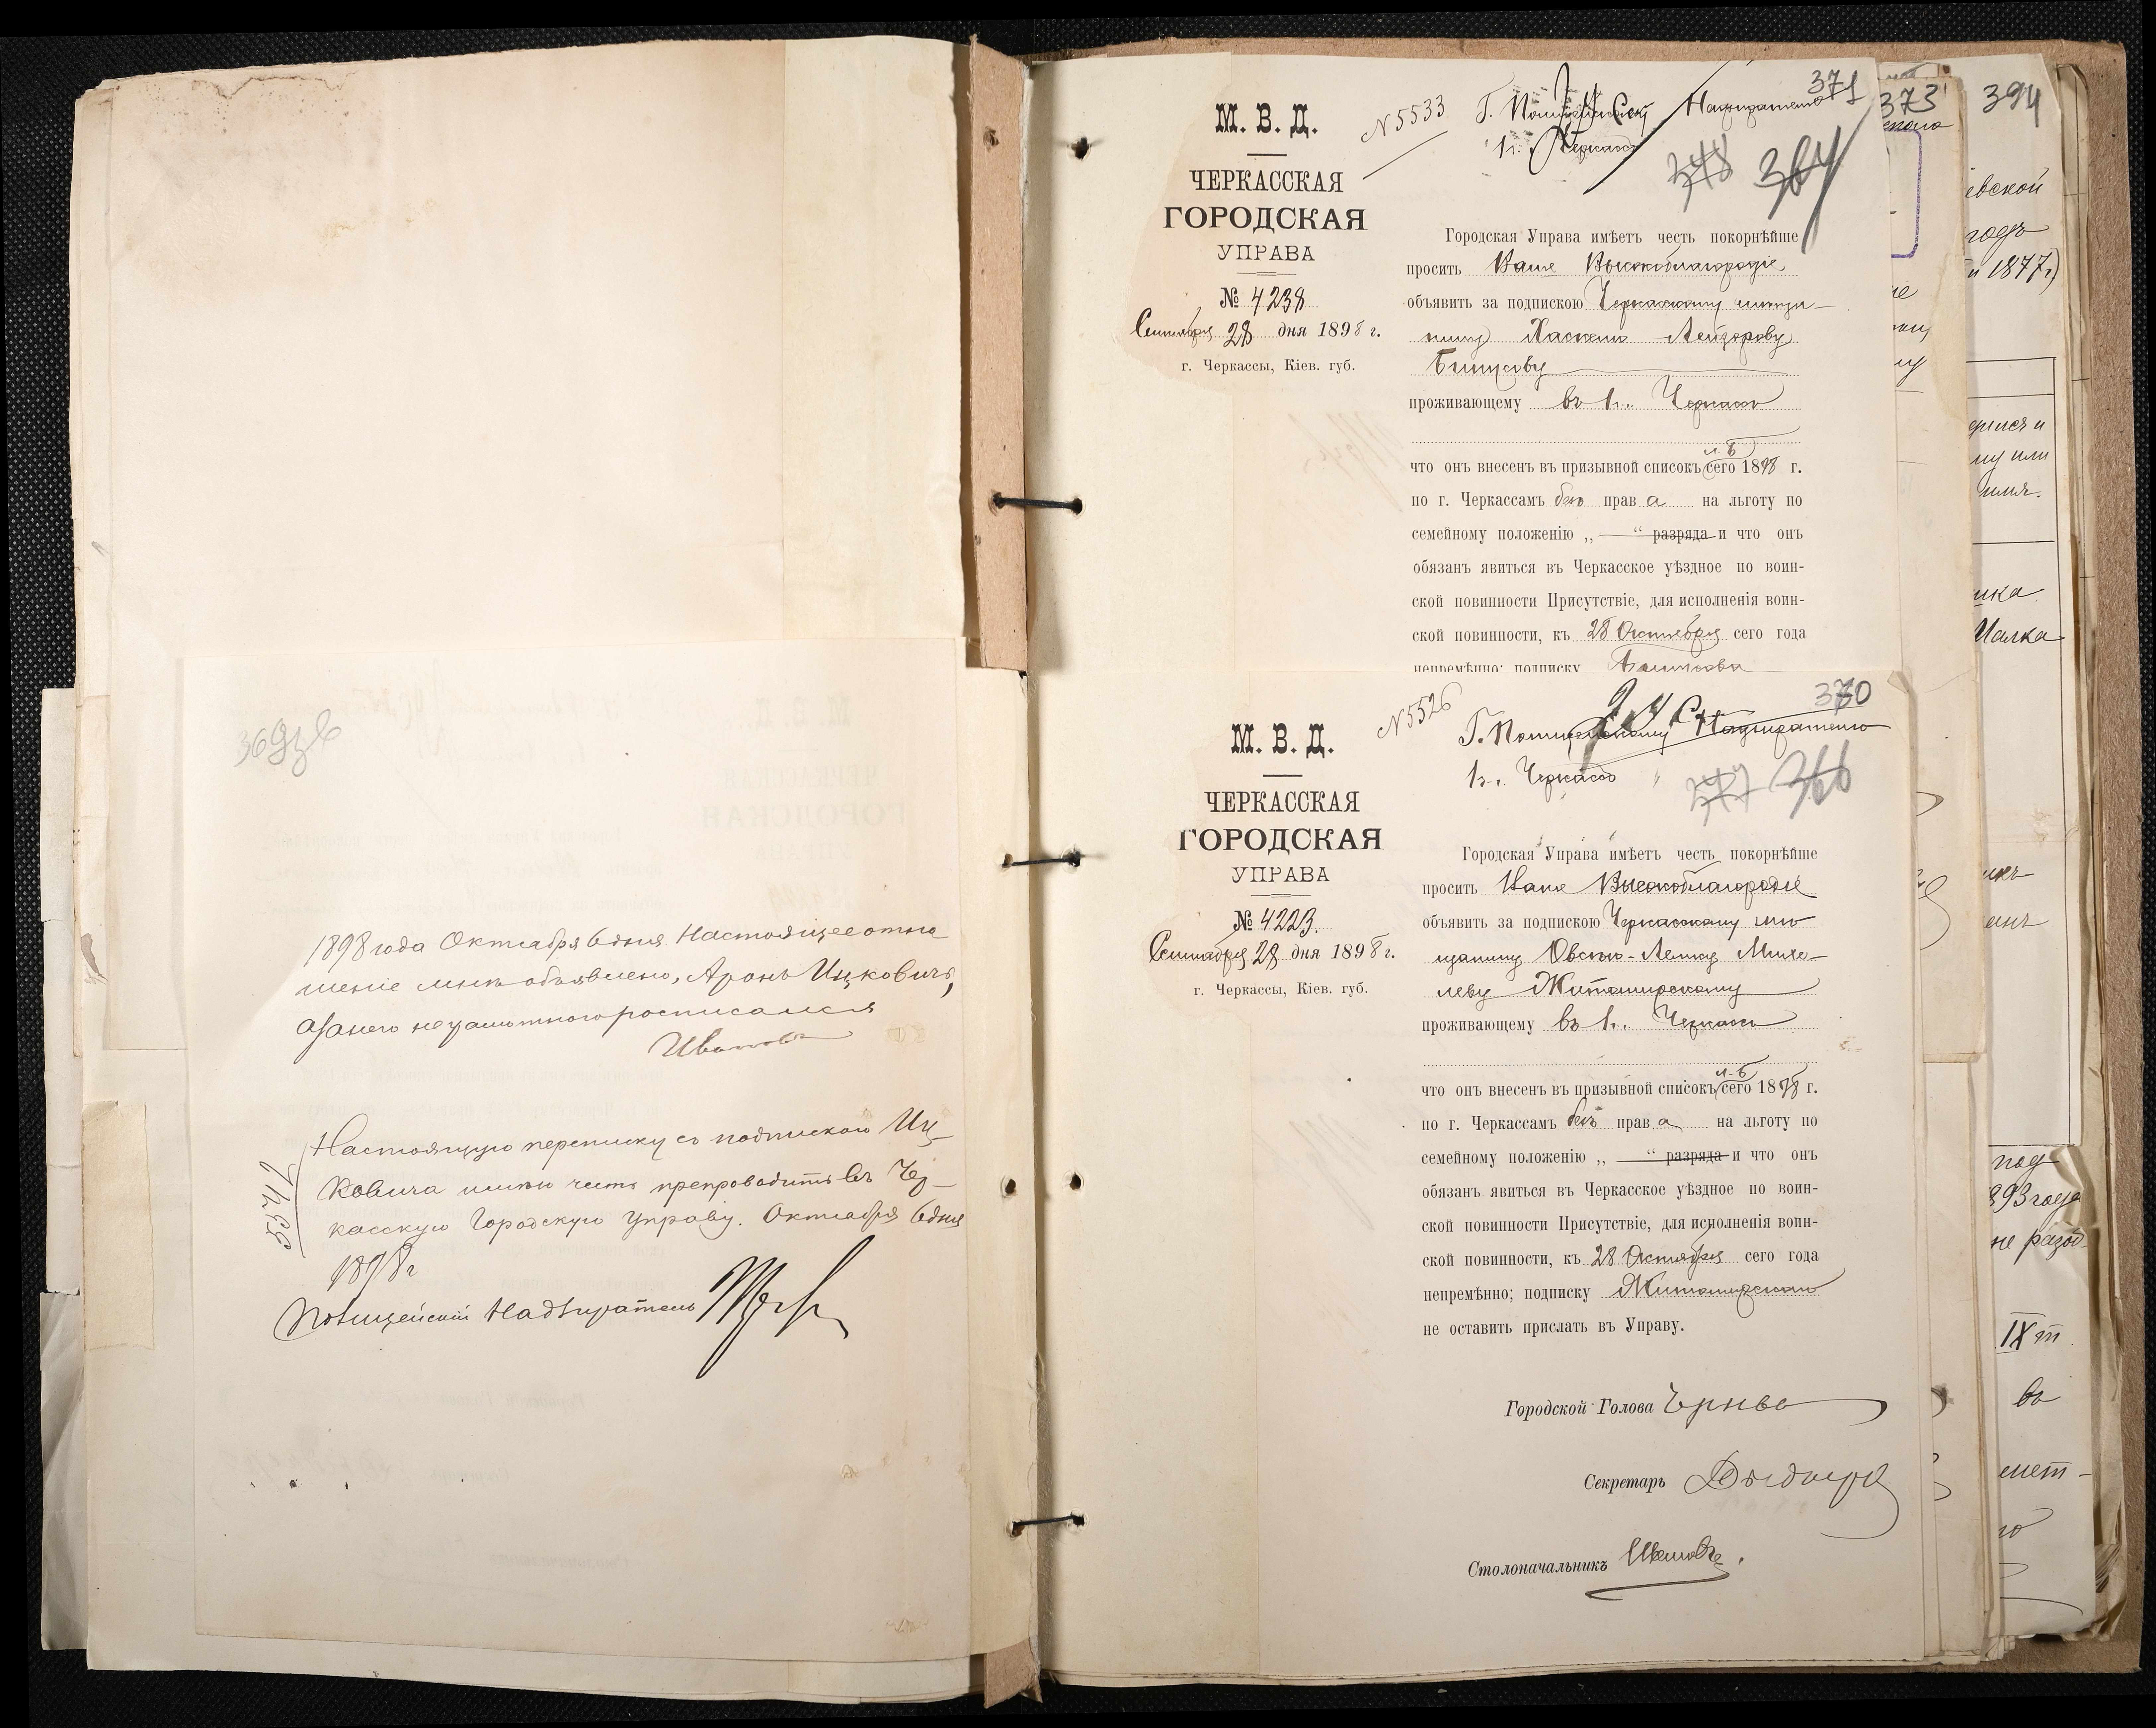 369 зв
1898 года Октября 6 дня. Настоящее отно
шеніе мнѣ объявлено, Аронъ Ицковичъ,
а за него неграмотного росписался
Ивановъ
Настоящую переписку съ подпиской Иц-
ковича имѣю честь препроводить въ Чер-
касскую Городскую Управу. Октября 6 дня
1898 г
Полицейский Надзиратель
371
М. В. Д.
ЧЕРКАССКАЯ
ГОРОДСКАЯ
УПРАВА
№ 4238
Сентября 28 дня 1898 г.
г. Черкассы, Кіев. губ.
N 5533
Г. Надзирателю
г. Черкассъ
348 364
Городская Управа имѣетъ честь покорнѣйше
просить Ваше Высокоблагородіе
объявить за подпискою Черкасскому мѣща-
нину Хаскелю Лейзерову
проживающему въ г. Черкассъ
что онъ внесенъ въ призывной списокъ сего 1898 г.
по г. Черкассамъ безъ права на льготу по
семейному положенію „ “ разряда и что онъ
обязанъ явиться въ Черкасское уѣздное по воин-
ской повинности Присутствіе, для исполненія воин-
ской повинности, къ 28 Октября сего года
непремѣнно; подписку
370
М. В. Д.
ЧЕРКАССКАЯ
ГОРОДСКАЯ
УПРАВА
№ 4223.
Сентября 28 дня 1898 г.
г. Черкассы, Кіев. губ.
N 5526
Г. Полицейскому Надзирателю
г. Черкассъ
347 366
Городская Управа имѣетъ честь покорнѣйше
просить Ваше Высокоблагородіе
объявить за подпискою Черкасскому мѣ
щанину Овсею-Лейбѣ Михе-
леву Житомирскому
проживающему въ г. Черкассъ
что онъ внесенъ въ призывной списокъ сего 1898 г.
по г. Черкассамъ безъ права на льготу по
семейному положенію „ “ разряда и что онъ
обязанъ явиться въ Черкасское уѣздное по воин-
ской повинности Присутствіе, для исполненія воин-
ской повинности, къ 28 Октября сего года
непремѣнно; подписку Житомирскаго
не оставить прислать въ Управу.
Городской Голова
Секретарь
Столоначальникъ
373
394
евской
годъ
1877 г)
или
имя.
Малка
под
893 года
не разоб
IX т
въ